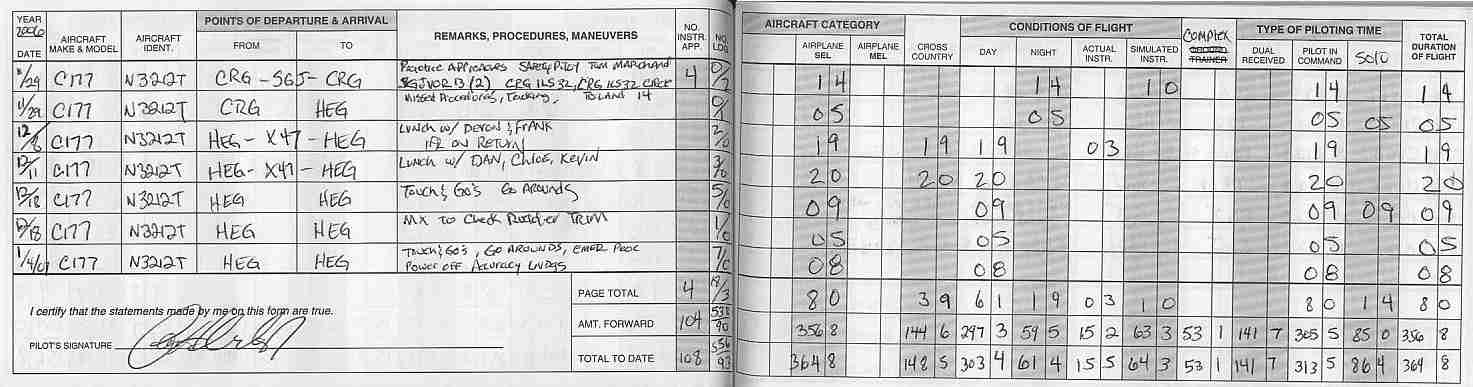 YEAR 2006 DATE AIRCRAFT MAKE & MODEL AIRCRAFT IDENT. POINTS OF DEPARTURE & ARRIVAL FROM TO REMARKS, PROCEDURES, MANEUVERS NO. INSTR. APP. NO. LDG AIRCRAFT CATEGORY AIRPLANE SEL AIRPLANE MEL CROSS COUNTRY CONDITIONS OF FLIGHT DAY NIGHT ACTUAL INSTR. SIMULATED INSTR. COMPLEX GROUND TRAINER TYPE OF PILOTING TIME DUAL RECEIVED PILOT IN COMMAND SOLO TOTAL DURATION OF FLIGHT
11/29 C177 N3212T CRG - SGJ - CRG Practice Approaches Safety Pilot Tom Marchand 4 0/2 1 4 1 4 1 0 1 4 1 4
SGJ VOR 13 (2) CRG ILS 32, CRG ILS 32 Circle
11/29 C177 N3212T CRG HEG Missed Procedures, Tracking, To Land 14 0/1 0 5 0 5 0 5 0 5 0 5
12/8 C177 N3212T HEG - X47 - HEG Lunch w/ Devon & Frank 2/0 1 9 1 9 1 9 0 3 1 9 1 9
IFR on Return
12/11 C177 N3212T HEG - X47 - HEG Lunch w/ Dan, Chloe, Kevin 3/0 2 0 2 0 2 0 2 0 2 0
12/18 C177 N3212T HEG HEG Touch & Go's Go Arounds 5/0 0 9 0 9 0 9 0 9 0 9
12/18 C177 N3212T HEG HEG Mx to Check Rudder Trim 1/0 0 5 0 5 0 5 0 5
1/4/07 C177 N3212T HEG HEG Touch & Go's, Go Arounds, Emer Proc 7/0 0 8 0 8 0 8 0 8
Power off Accuracy Lndgs
PAGE TOTAL 4 18/3 8 0 3 9 6 1 1 9 0 3 1 0 8 0 1 4 8 0
I certify that the statements made by me on this form are true.
AMT. FORWARD 104 538/90 356 8 144 6 297 3 59 5 15 2 63 3 53 1 141 7 305 5 85 0 356 8
PILOT'S SIGNATURE
TOTAL TO DATE 108 556/93 364 8 148 5 303 4 61 4 15 5 64 3 53 1 141 7 313 5 86 4 364 8